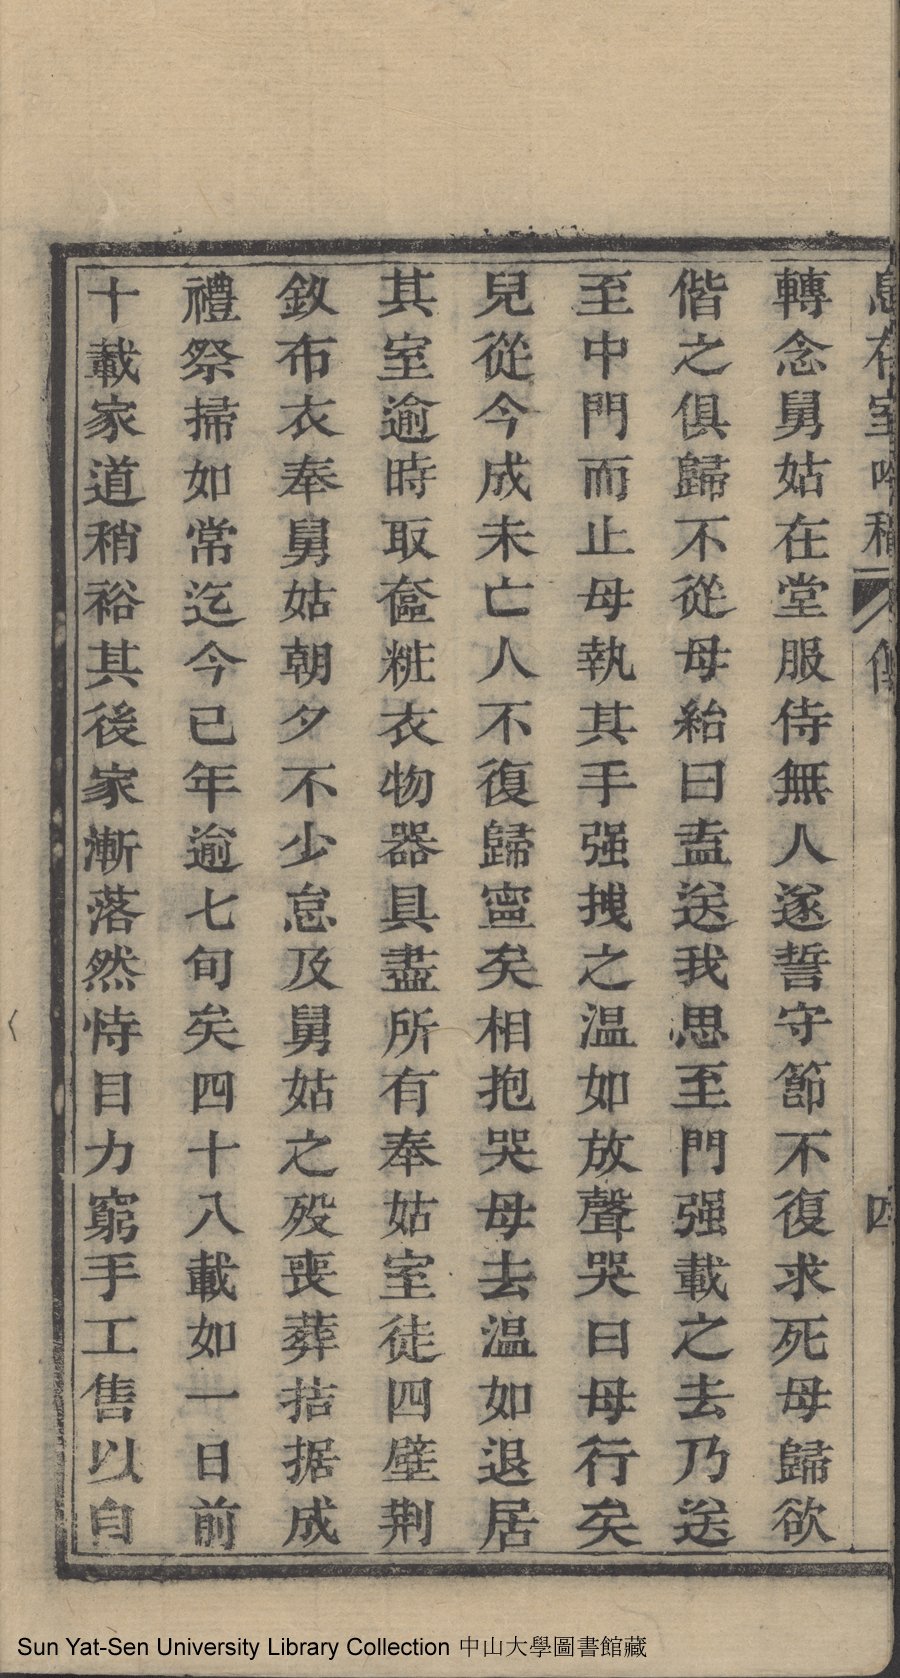 轉念舅姑在堂服侍無人遂誓守節不復求死母歸欲
偕之俱歸不從母紿曰盍送我思至門强載之去乃送
至中門而止母執其手强拽之温如放聲哭曰母行矣
兒從今成未亡人不復歸寧矣相抱哭母去温如退居
其室逾時取奩粧衣物器具盡所有奉姑室徒四壁荆
釵布衣奉舅姑朝夕不少怠及舅姑之殁喪葬拮据成
禮祭掃如常迄今已年逾七旬矣四十八載如一日前
十載家道稍裕其後家漸落然恃目力窮手工售以自
Sun Yat-Sen University Library Collection 中山大學圖書館藏